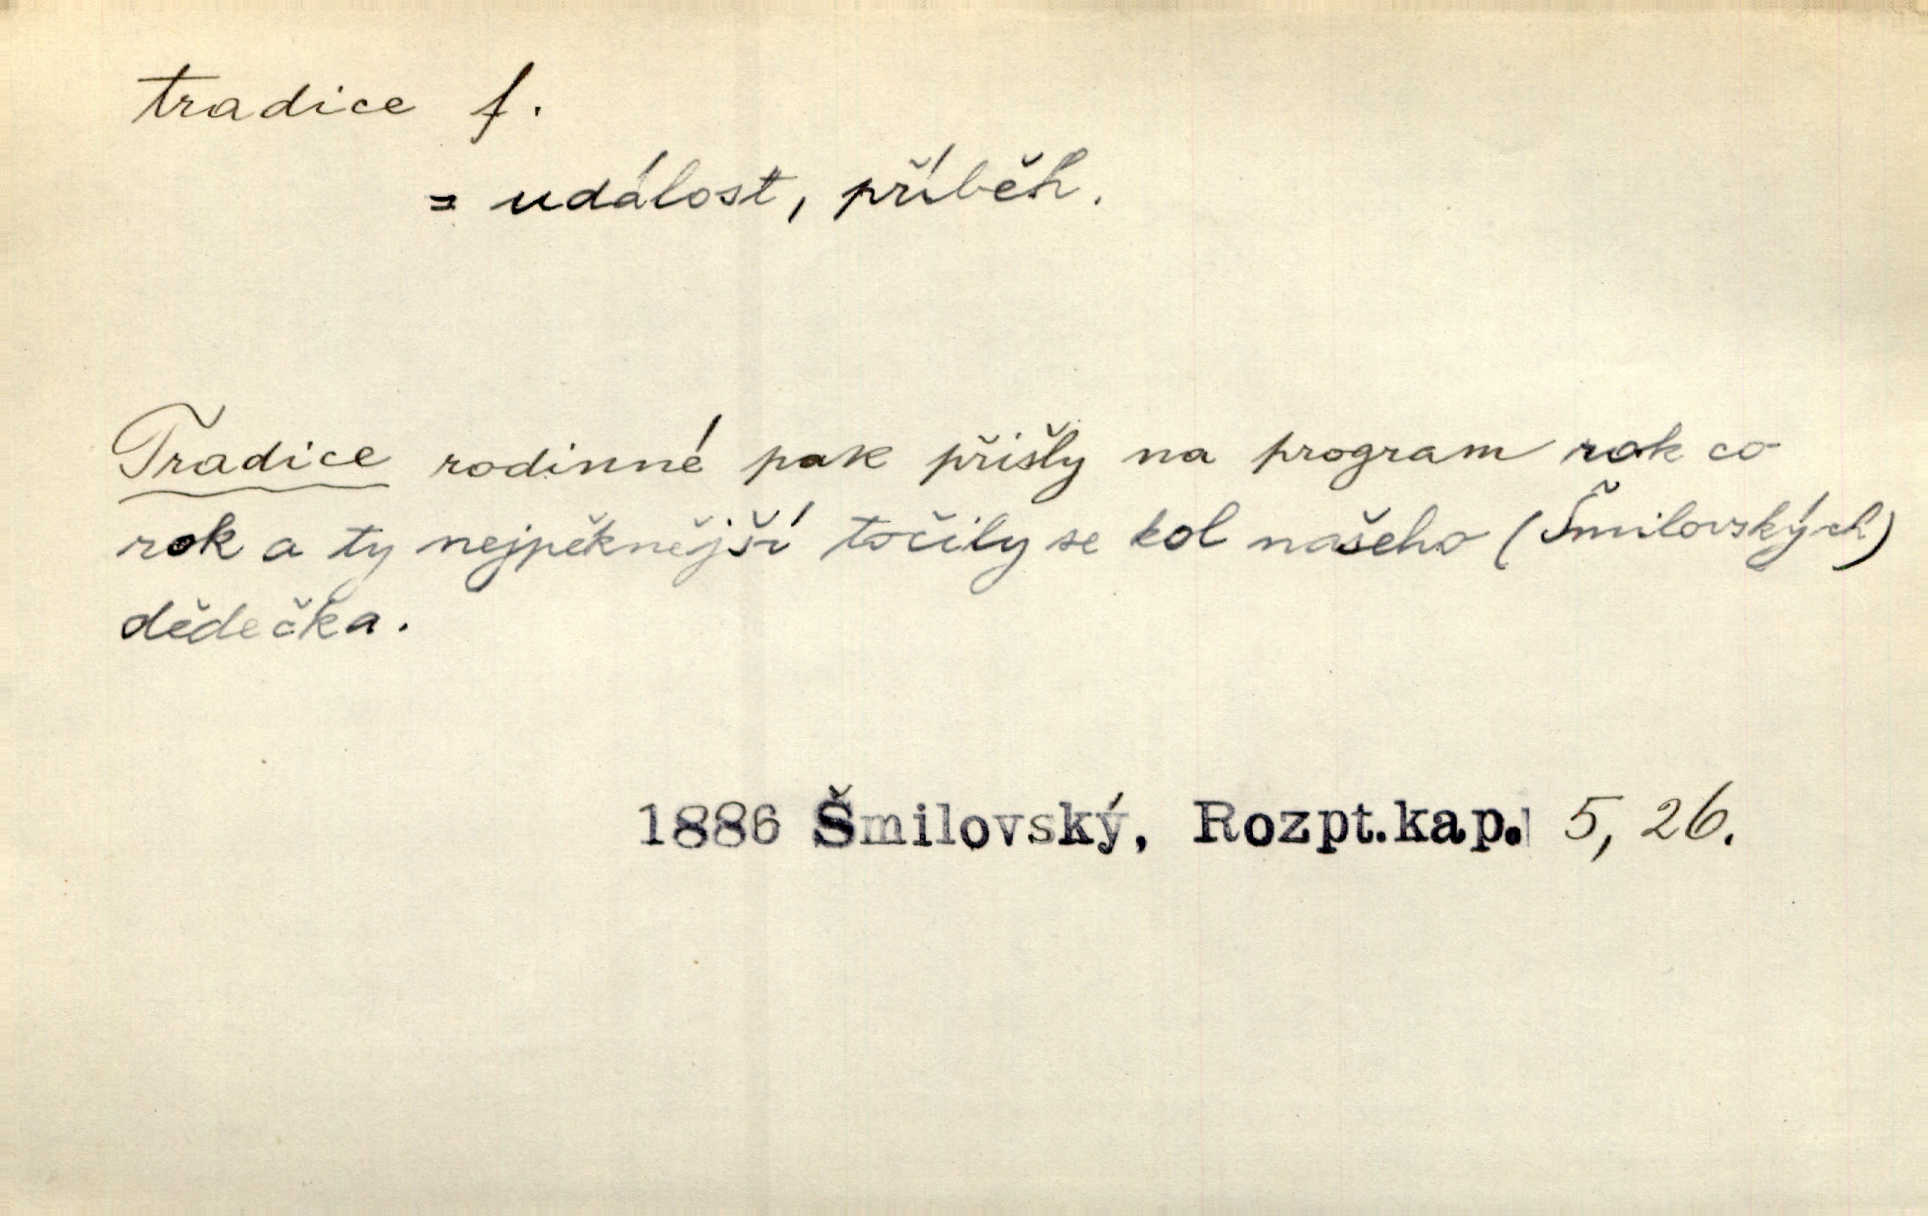 tradice f.
= událost, příběh.
Tradice rodinné pak přišly na program rok co
rok a ty nejpěknější točily se kol našeho (Šmilovských)
dědečka.
1886 Šmilovský, Rozpt.kap. 5, 26.